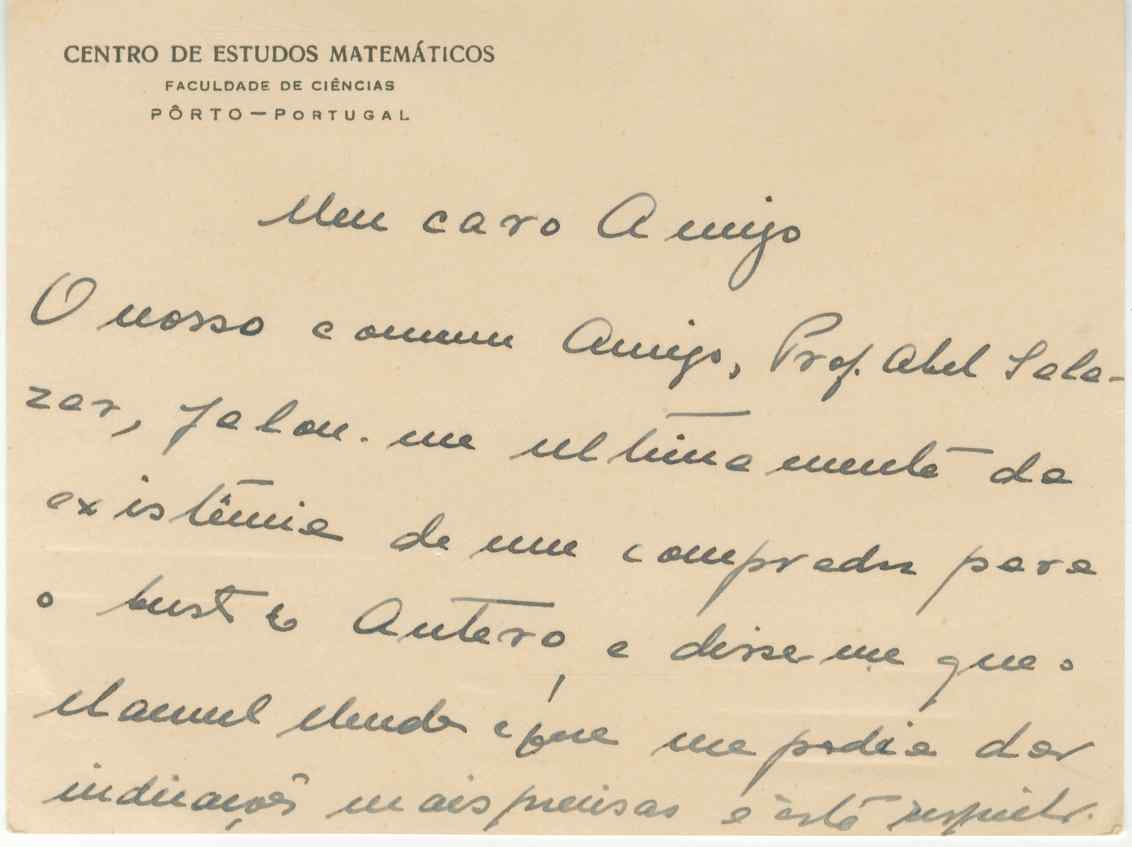 CENTRO DE ESTUDOS MATEMÁTICOS
FACULDADE DE CIÊNCIAS
PÔRTO — PORTUGAL
Meu caro Amigo
O nosso comum Amigo, Prof. Abel Sala-
zar, falou-me ultimamente da
existência de um comprador para
o busto do Antero, e disse-me que o
Manuel Mendes é que me podia dar
indicações mais precisas a êste respeito.